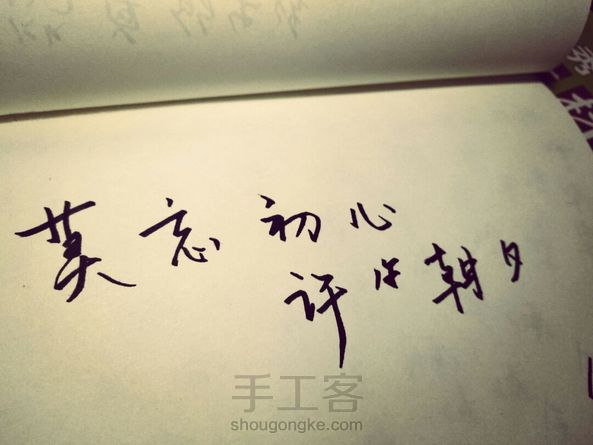 莫忘初心
许你朝夕
手工客
shougongke.com